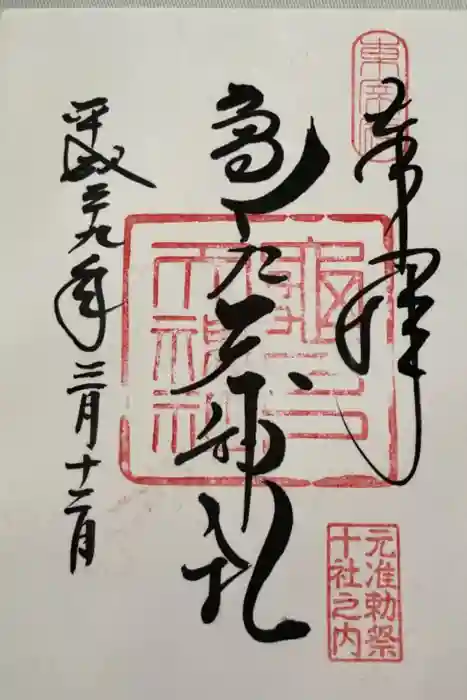 東宰府
奉拝
亀戸天神社
龜戸
天神社
元准勅祭
十社之内
平成二九年三月十二日